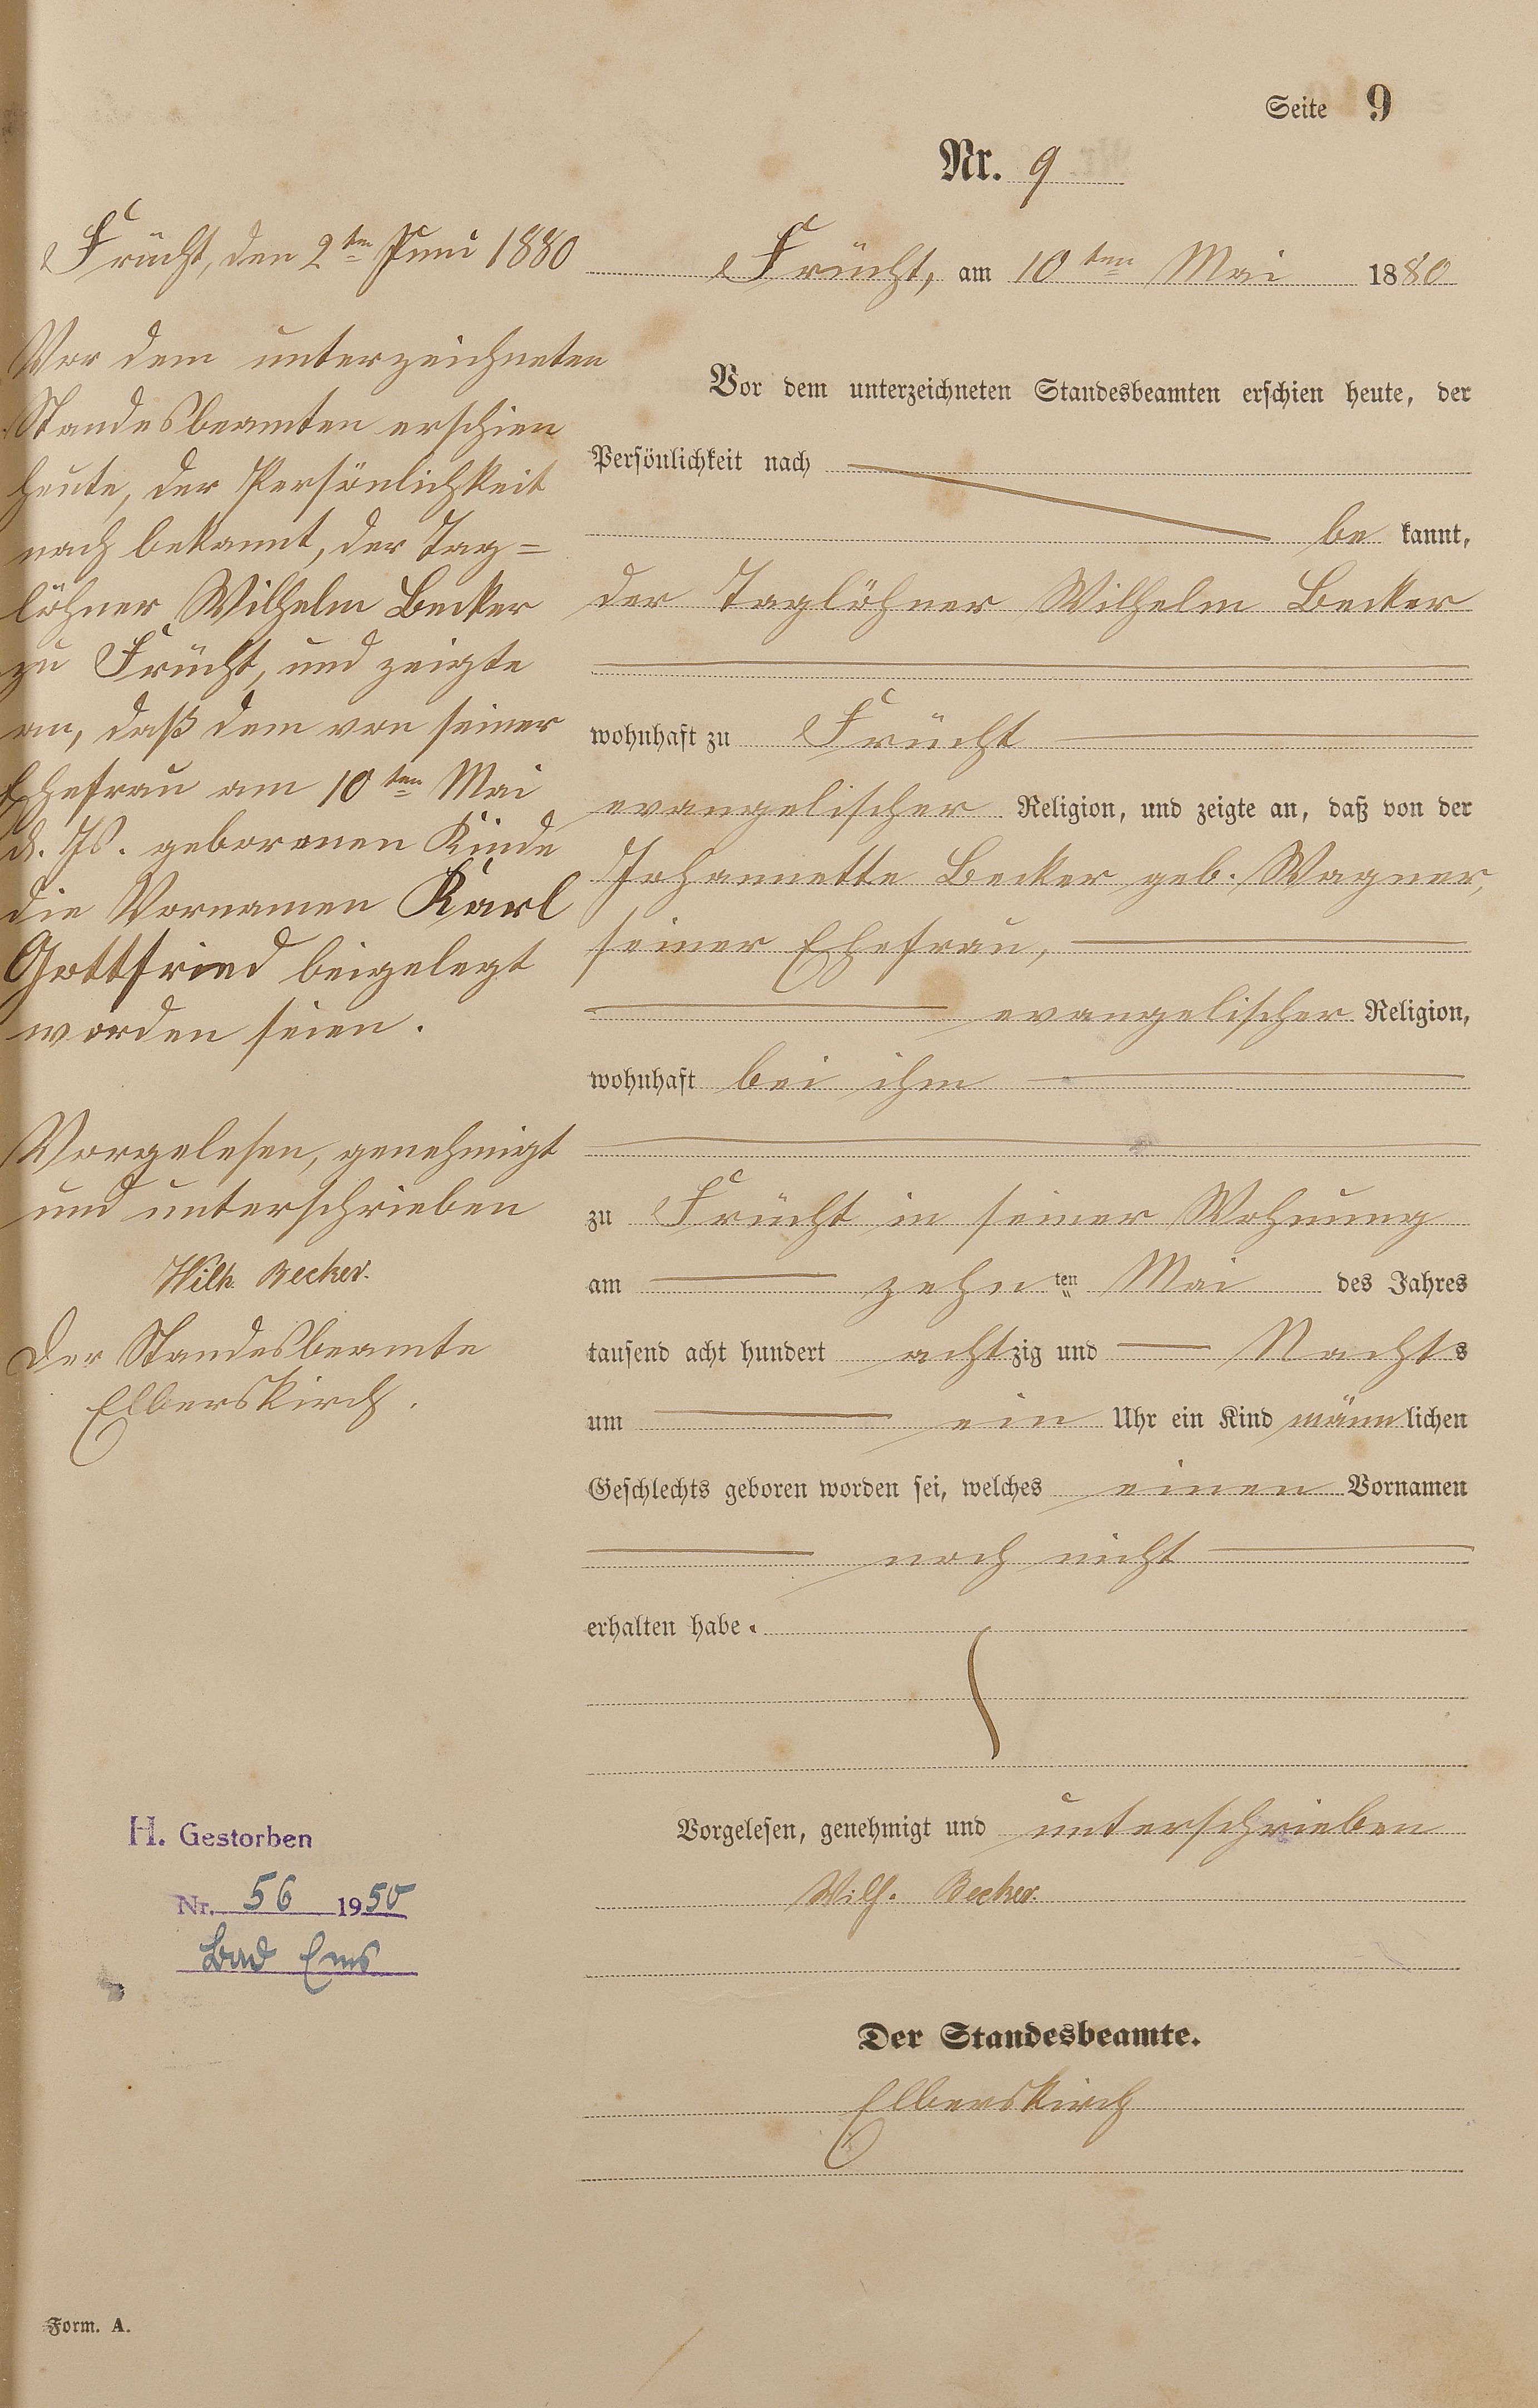 Seite 9
Nr. 9
Frücht, am 10ten Mai 1880
Vor dem unterzeichneten Standesbeamten erschien heute, der
Persönlichkeit nach
be kannt,
der Taglöhner Wilhelm Becker
wohnhaft zu Frücht
evangelischer Religion, und zeigte an, daß von der
Johannette Becker geb. Wagner,
seiner Ehefrau,
evangelischer Religion,
wohnhaft bei ihm
zu Frücht in seiner Wohnung
am zehn ten Mai des Jahres
tausend acht hundert achtzig und Nachts
um ein Uhr ein Kind männlichen
Geschlechts geboren worden sei, welches einen Vornamen
noch nicht
erhalten habe.
Vorgelesen, genehmigt und unterschrieben
Wilh. Becker.
Der Standesbeamte.
Elberskirch
Frücht, den 2ten Juni 1880
Vor dem unterzeichneten
Standesbeamten erschien
heute, der Persönlichkeit
nach bekannt, der Tag=
löhner Wilhelm Becker
zu Frücht, und zeigte
an, daß dem von seiner
Ehefrau am 10ten Mai
d. Js. geborenen Kinde
die Vornamen Karl
Gottfried beigelegt
worden seien.
Vorgelesen, genehmigt
und unterschrieben
Wilh. Becker.
Der Standesbeamte
Elberskirch.
H. Gestorben
Nr. 56 1950
Bad Ems
Form. A.